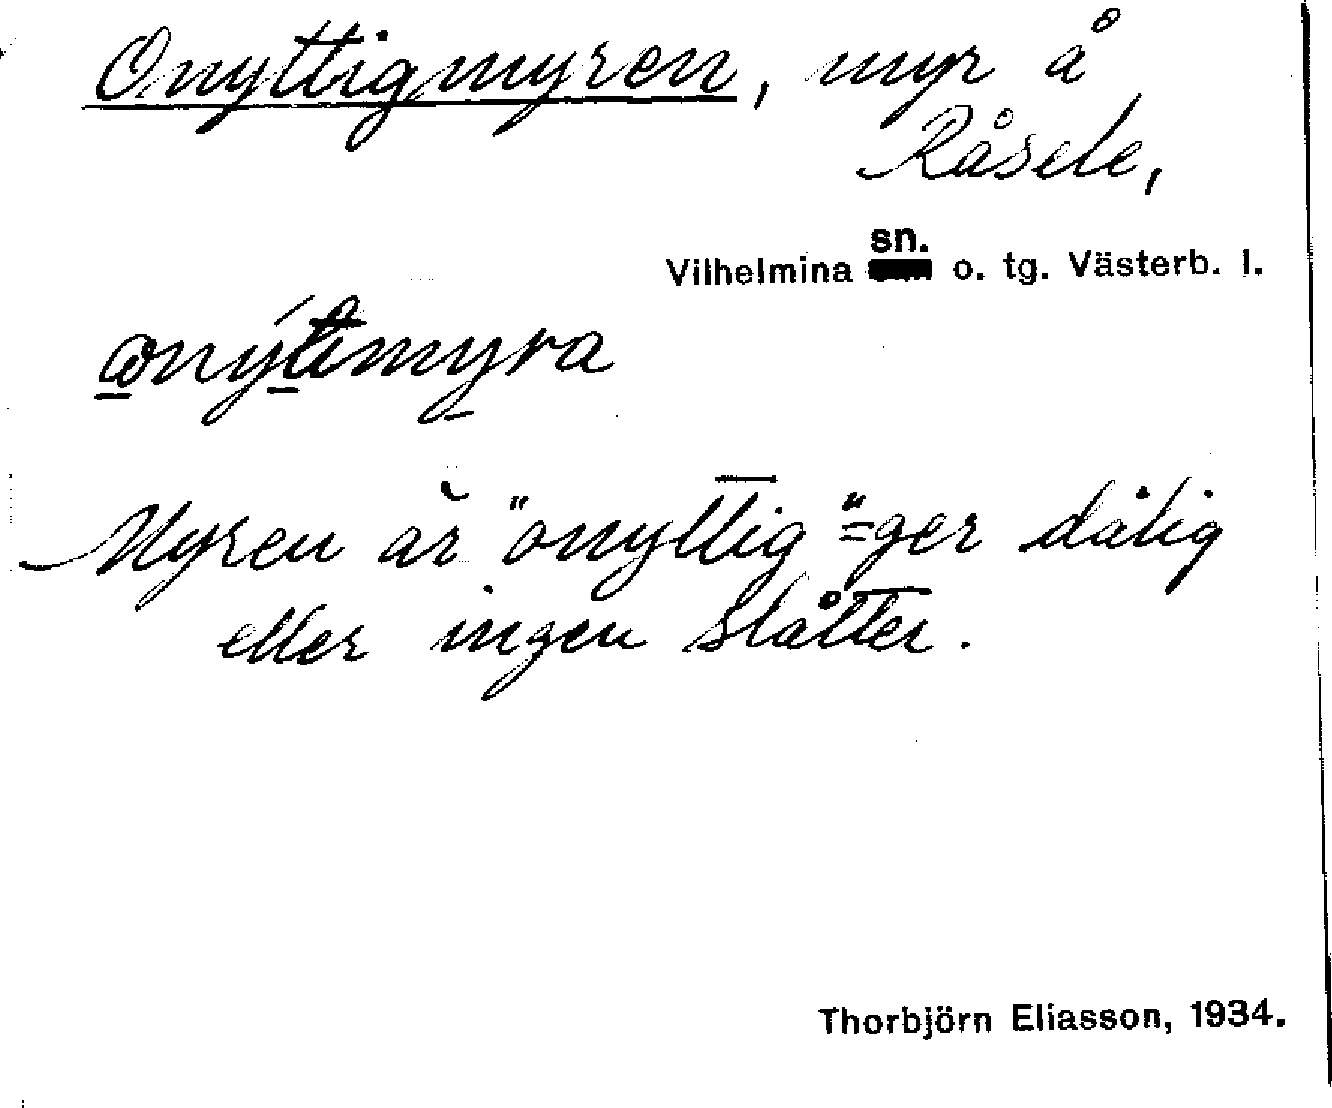 Onyttigmyren, myr å
Råsele,
sn.
Vilhelmina o. tg. Västerb. l.
Myren är "onyttig" = ger dålig
eller ingen slåtter.
Thorbjörn Eliasson, 1934.